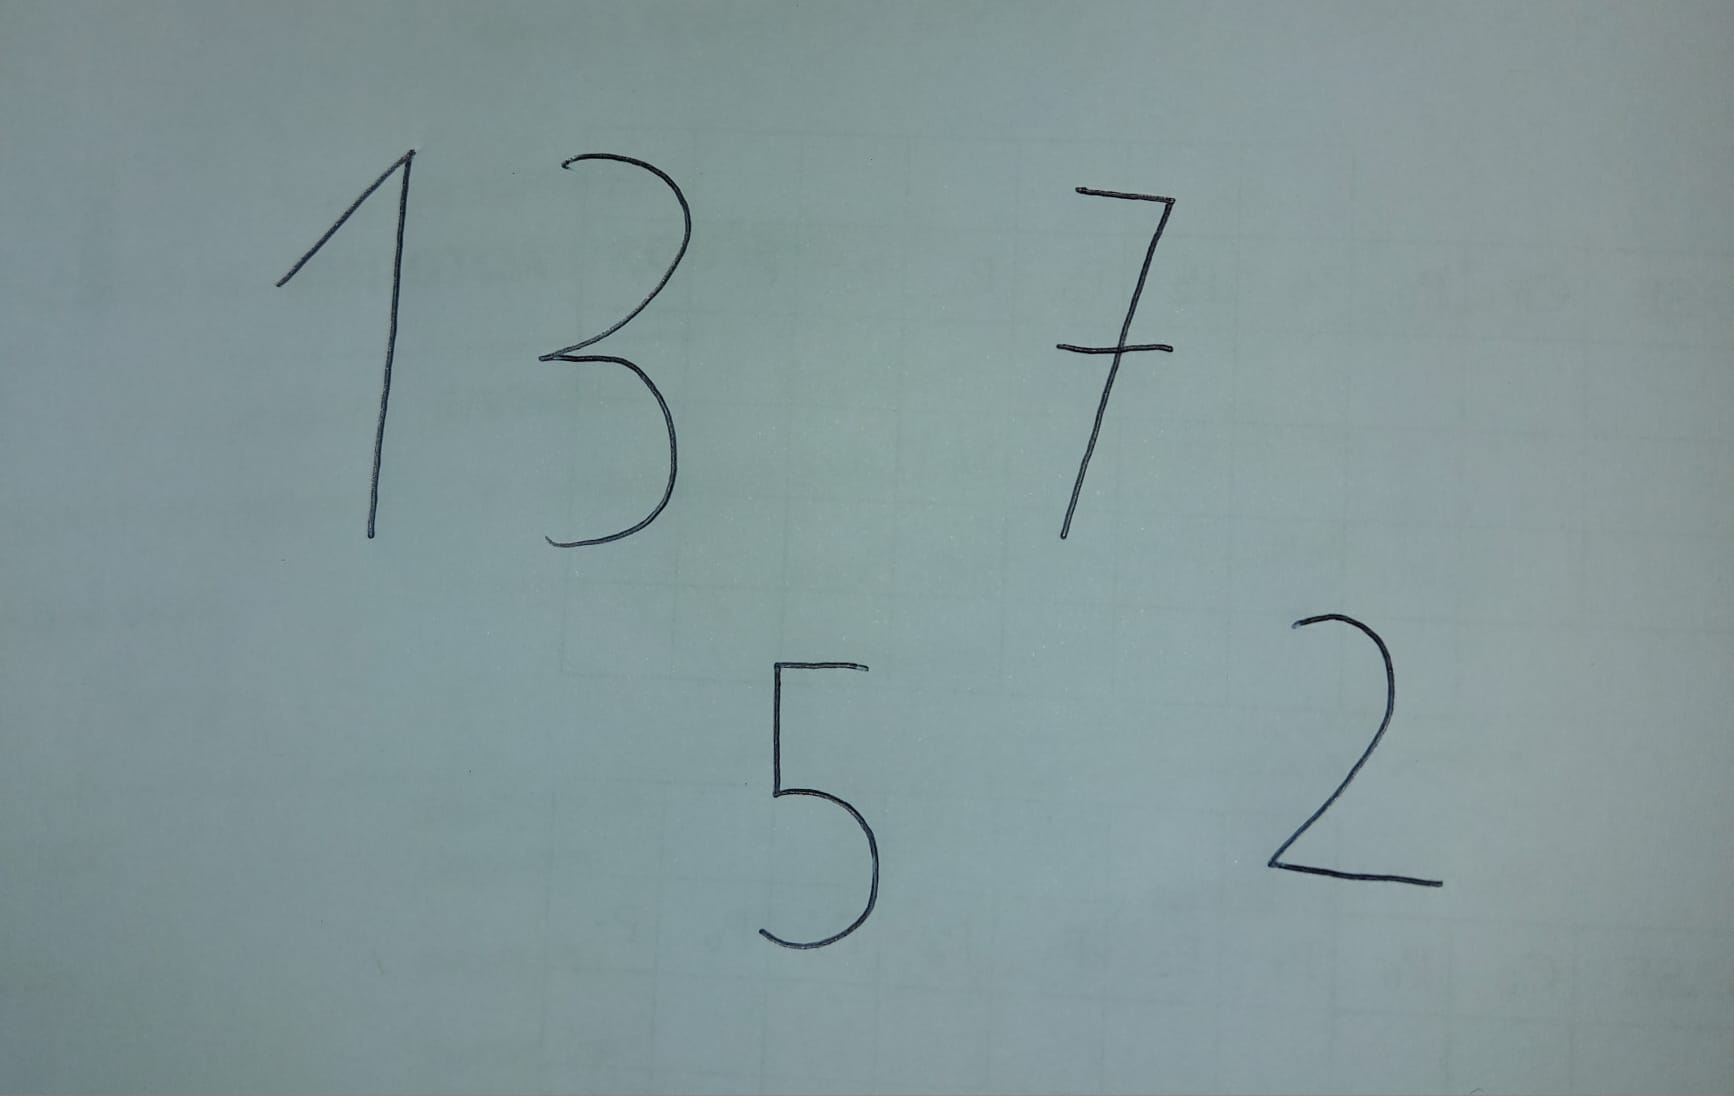 13 7
5 2